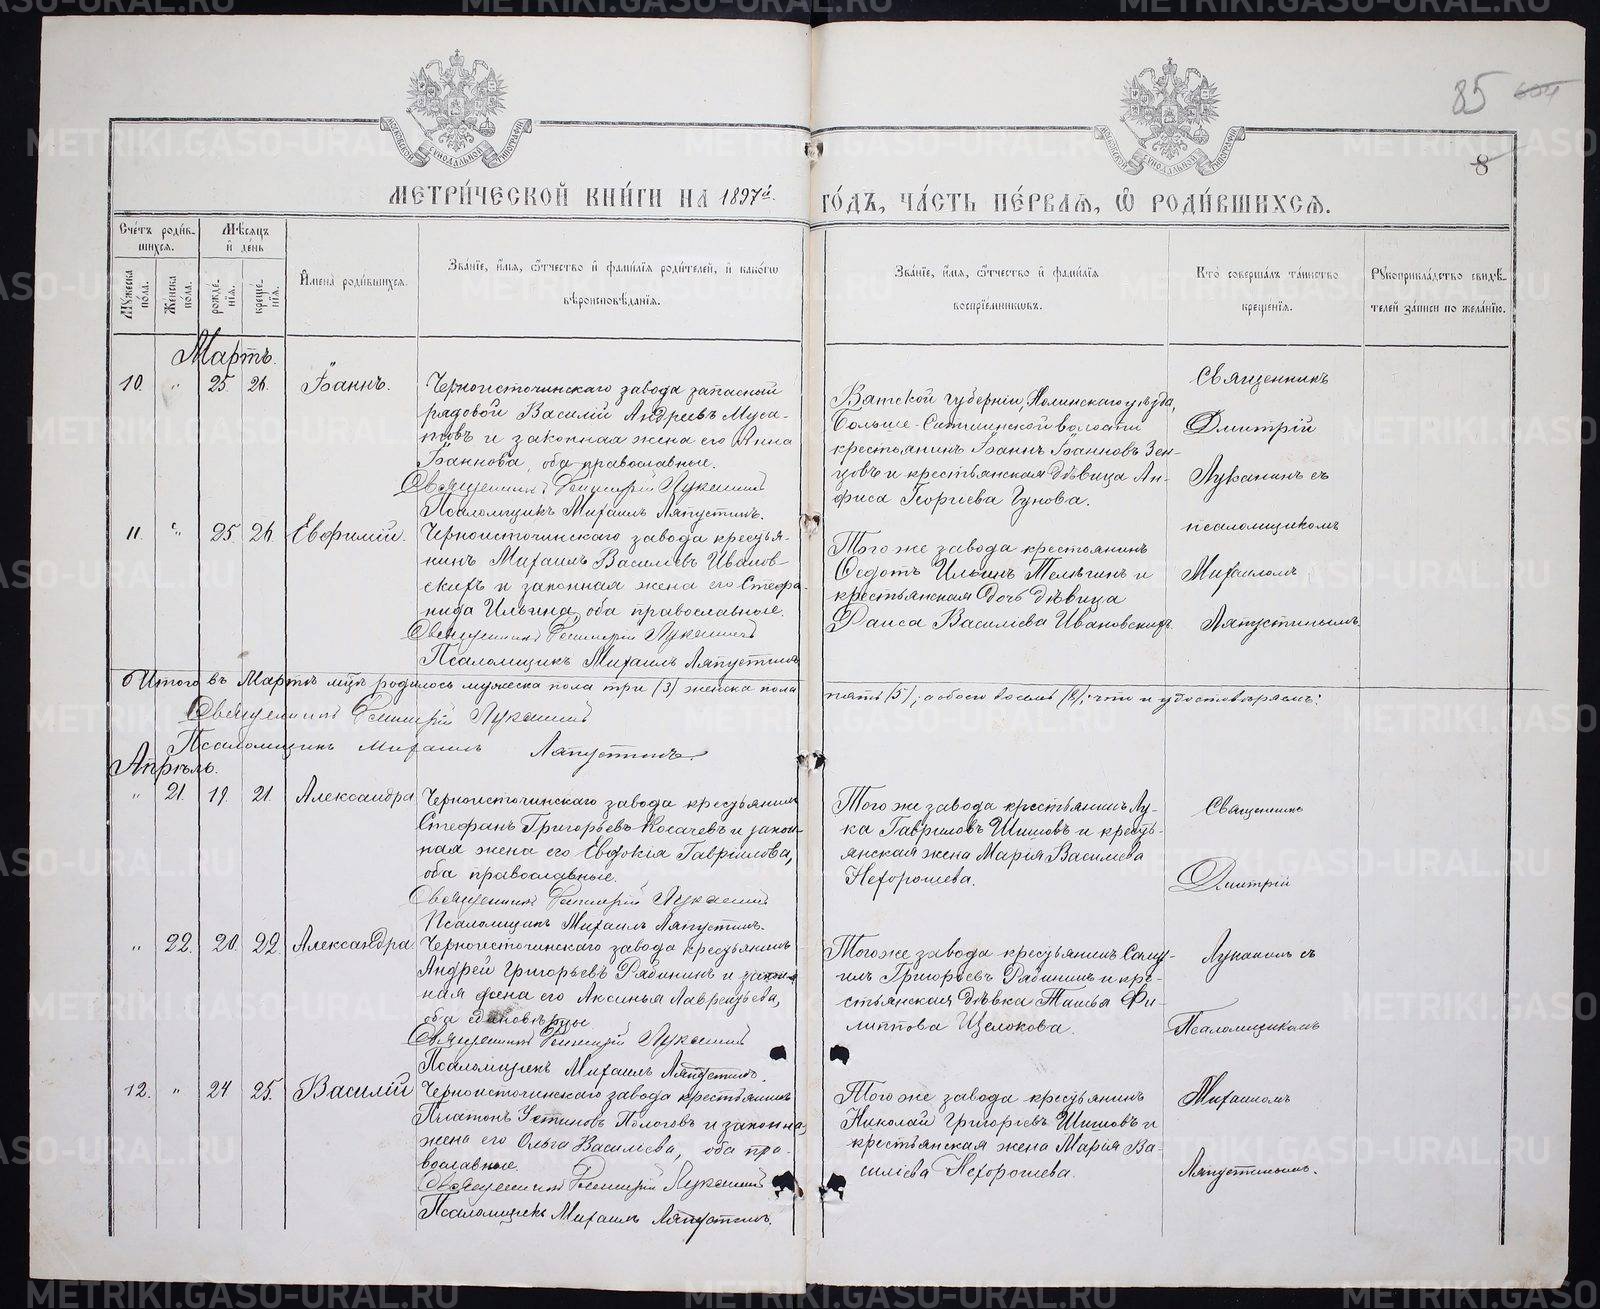 МЕТРИ́ЧЕСКОЙ КНИ́ГИ НА 1897й. ГО́ДЪ, ЧА́СТЬ ПЕ́РВАѦ, Ѡ РОДИ́ВШИХСѦ.
85
8
Сче́тъ роди́в-
шихсѧ.
Мѣ́сѧцъ
и де́нь
Мꙋ́жеска
по́ла.
Же́нска
пола.
рожде́-
нїѧ.
креще́-
нїѧ.
И҆мена̀ роди́вшихсѧ.
Зва́нїе, и҆́мѧ, ѻ҆́тчество и҆ фами́лїѧ роди́телей, и҆ како́гѡ
вѣроисповѣ́данїѧ.
Зва́нїе, и҆́мѧ, ѻ҆́тчество и҆ фами́лїѧ
воспрїе́мникѡвъ.
Кто̀ соверша́лъ та́инство
креще́нїѧ.
Рꙋкоприкла́дство свидѣ́-
телей за́писи по жела́нїю.
Мартъ.
10. " 25. 26. Іоаннъ.
Черноисточинскаго завода запасный
рядовой Василій Андреевъ Муса-
товъ и законная жена его Анна
Іоаннова, оба православные.
Священникъ Димитрій Луканинъ
Псаломщикъ Михаилъ Ляпустинъ.
Вятской губерніи, Нолинскаго уѣзда,
крестьянинъ Іоаннъ Іоанновъ Зен-
цовъ и крестьянская дѣвица Ан-
фиса Георгіева Гунова.
Священникъ
Дмитрій
Луканинъ съ
псаломщикомъ
Михаиломъ
Ляпустинымъ.
11. " 25 26 Евфимій.
Черноисточинскаго завода крестья-
нинъ Михаилъ Василіевъ Иванов-
скихъ и законная жена его Стефа-
нида Ильина, оба православные.
Священникъ Димитрій Луканинъ
Псаломщикъ Михаилъ Ляпустинъ
Того же завода крестьянинъ
Ѳедотъ Ильинъ Телѣгинъ и
крестьянская дочь дѣвица
Раиса Василіева Ивановскихъ.
Итого въ Мартѣ мцѣ родилось мужеска пола три (3) женска пола пять (5); а обоего восемь (8); что и удостовѣряемъ:
Священникъ Димитрій Луканинъ
Псаломщикъ Михаилъ Ляпустинъ.
Апрѣль.
" 21. 19. 21. Александра
Черноисточинскаго завода крестьянинъ
Стефанъ Григорьевъ Косачевъ и закон-
ная жена его Евдокія Гавріилова,
оба православные.
Священникъ Димитрій Луканинъ
Псаломщикъ Михаилъ Ляпустинъ.
Того же завода крестьянинъ Лу-
ка Гавриловъ Шишовъ и кресть-
янская жена Марія Василіева
Нехорошева.
Священникъ
Дмитрій
Луканинъ съ
Псаломщикомъ
Михаиломъ
Ляпустинымъ.
" 22. 20. 22. Александра
Черноисточинскаго завода крестьянинъ
Андрей Григорьевъ Рябининъ и закон-
ная жена его Аксинья Лаврентьева,
оба единовѣрцы
Священникъ Димитрій Луканинъ
Псаломщикъ Михаилъ Ляпустинъ.
Того же завода крестьянинъ Саму-
илъ Григорьевъ Рябининъ и кре-
стьянская дѣвка Таисья Фи-
липпова Щелокова.
12. " 24 25. Василій
Черноисточинскаго завода крестьянинъ
Платонъ Устиновъ Пологовъ и законная
жена его Ольга Василіева, оба пра-
вославные.
Священникъ Димитрій Луканинъ
Псаломщикъ Михаилъ Ляпустинъ.
Того же завода крестьянинъ
Николай Григорьевъ Шишовъ и
крестьянская жена Марія Ва-
силіева Нехорошева.
METRIKI.GASO-URAL.RU